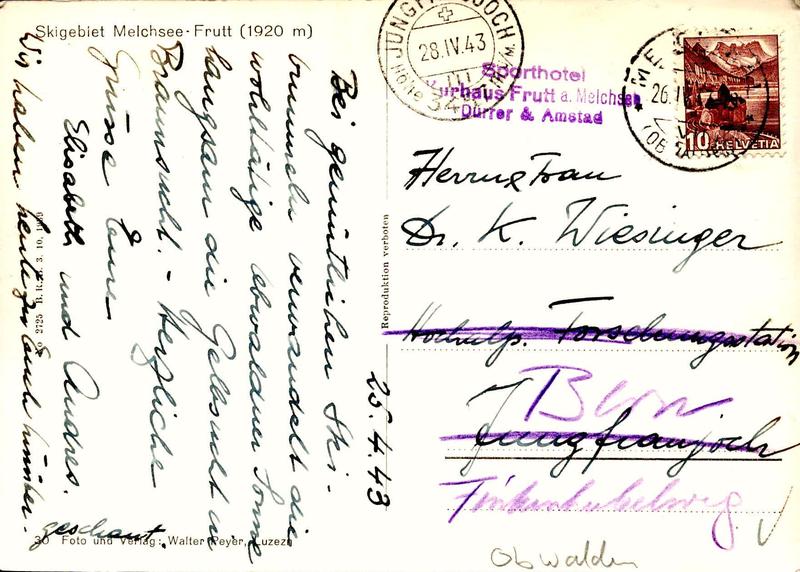 Skigebiet Melchsee-Frutt (1920 m)
Bei gemütlichen Ski-
bummeln verwandelt die
wohltätige Obwaldner Sonne
langsam die Gelbsucht in
Braunsucht. - Herzliche
Grüsse Euer
Elisabeth und Andres.
Wir haben heute zu Euch hinüber-
geschaut.
25.4.43
No 2725 B.R.B. 3. 10. 1939
30 Foto und Verlag: Walter Peyer, Luzern
Reproduktion verboten
JUNGFRAUJOCH
28.IV.43
Sporthotel
Kurhaus Frutt a. Melchsee
Dürrer & Amstad
26.IV
10 HELVETIA
Herrn & Frau
Dr. K. Wiesinger
Hochalp. Forschungsstation
Bern
Jungfraujoch
Finkenhubelweg
Obwalden